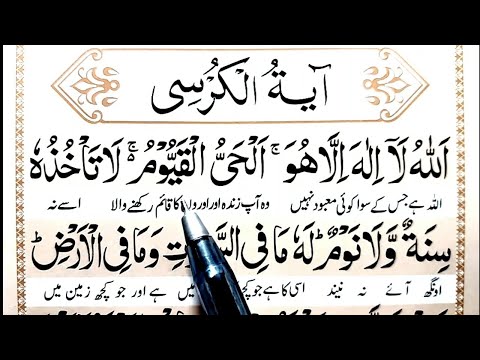 آيَةُ الْكُرْسِى
اَللّٰهُ لَاۤ اِلٰهَ اِلَّا هُوَ ۚ اَلْحَىُّ الْقَيُّوْمُ ۚ لَا تَاْخُذُهٗ
اللہ ہے جس کے سوا کوئی معبود نہیں وہ آپ زندہ اور اوروں کا قائم رکھنے والا اسے نہ
سِنَةٌ وَّلَا نَوْمٌ ؕ لَهٗ مَا فِى وَمَا فِى الْاَرْضِ ؕ
اونگھ آئے نہ نیند اسی کا ہے جو کچھ میں ہے اور جو کچھ زمین میں